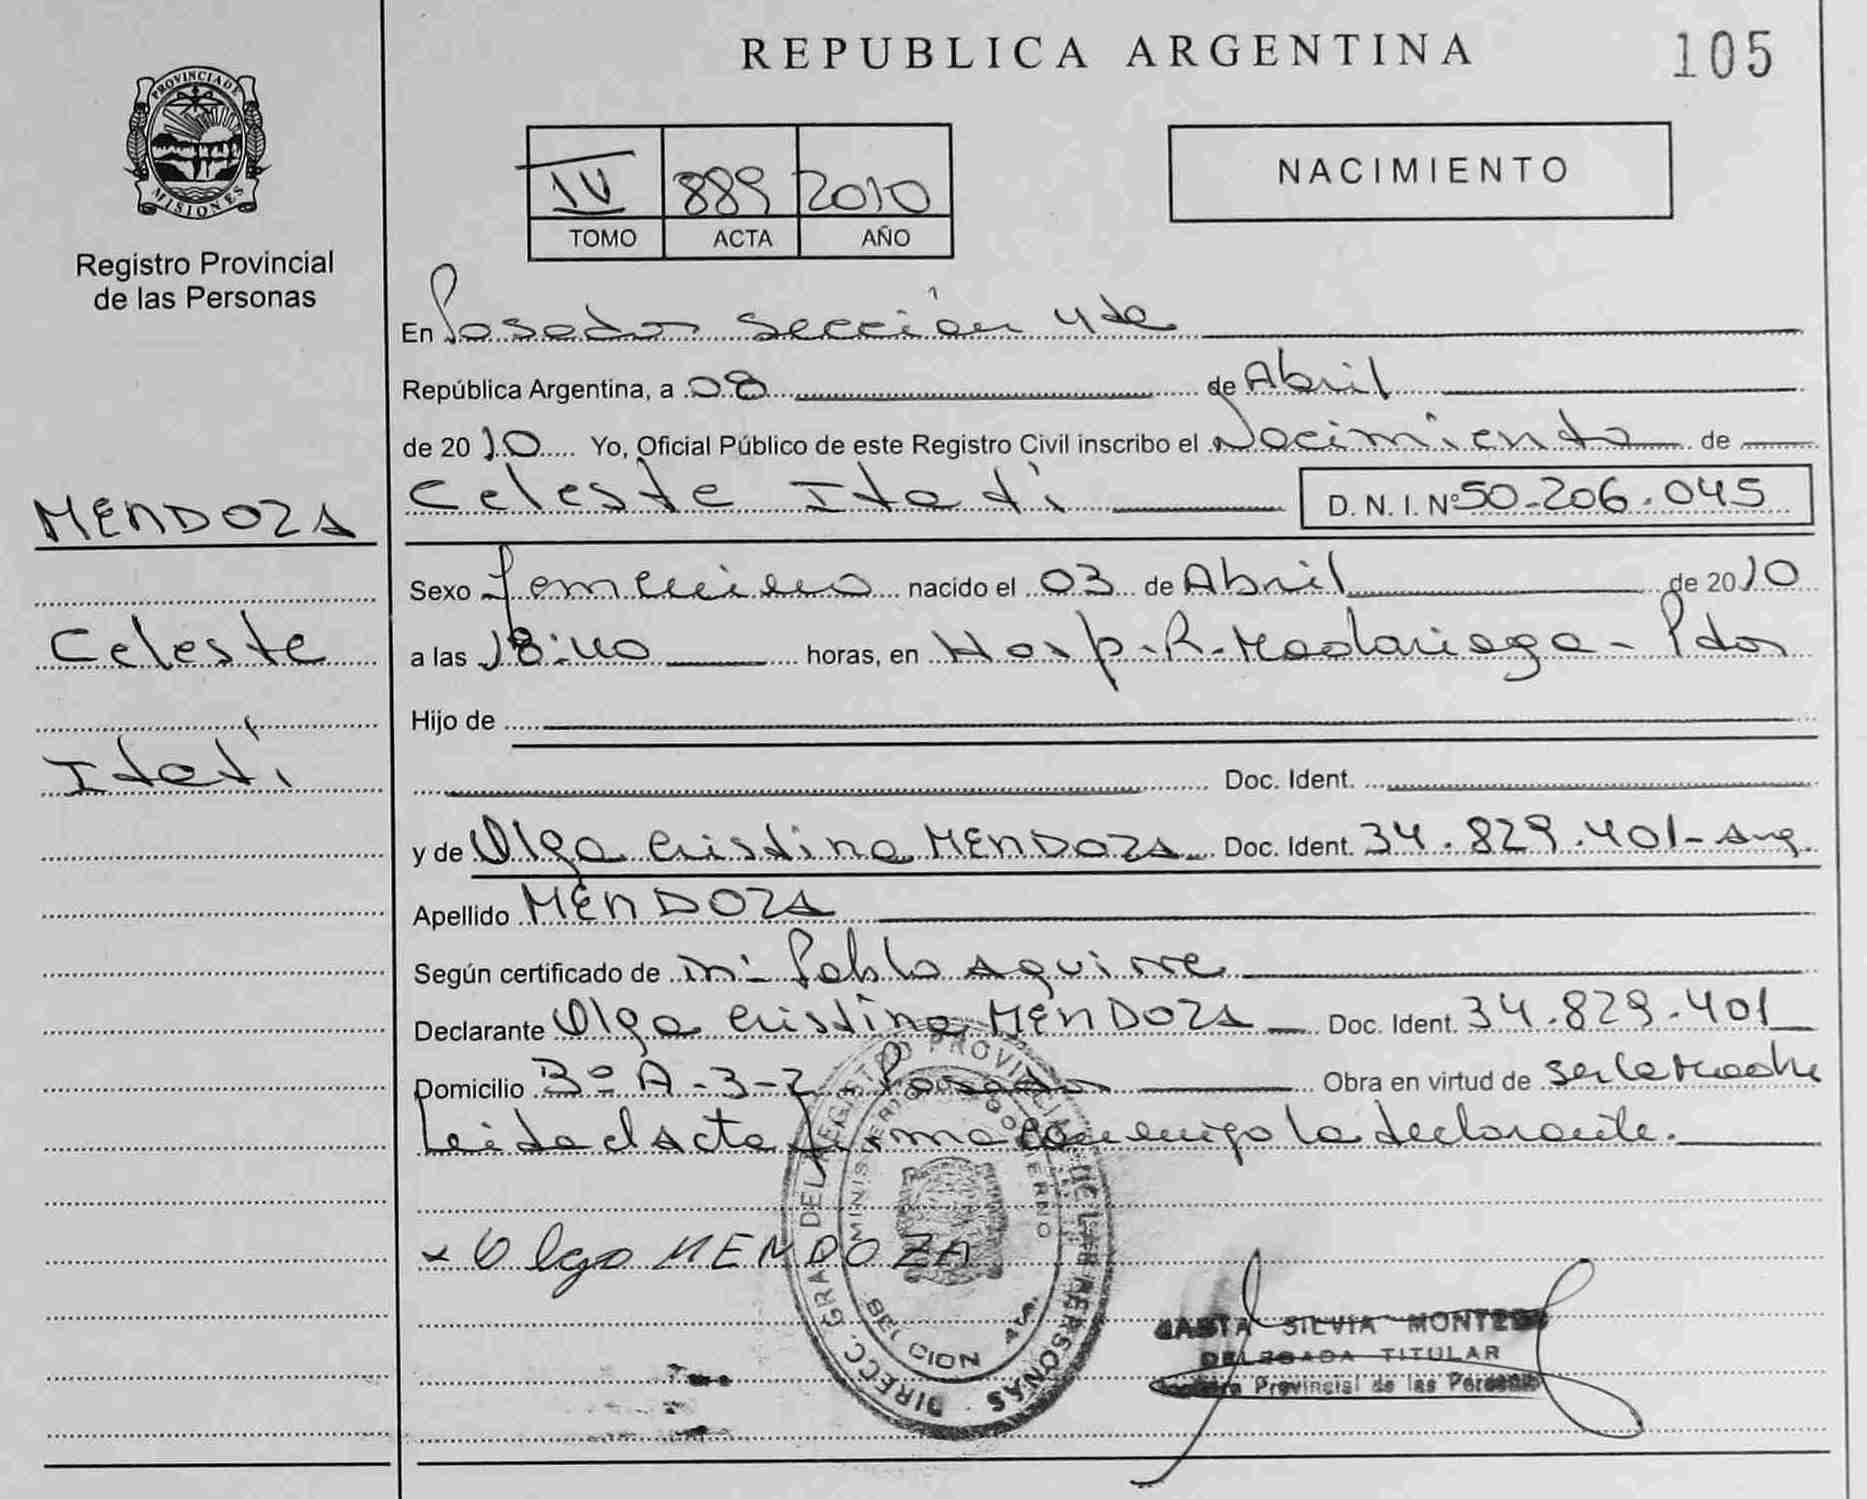 REPUBLICA ARGENTINA
105
PROVINCIA DE
MISIONES
Registro Provincial
de las Personas
IV 889 2010
TOMO ACTA AÑO
NACIMIENTO
En Posadas sección 4ta
República Argentina, a 08 de Abril
de 2010 Yo, Oficial Público de este Registro Civil inscribo el Nacimiento de
Celeste Itatí D. N. I. Nº 50.206.045
MENDOZA
Celeste
Itatí
Sexo femenino nacido el 03 de Abril de 2010
a las 18:40 horas, en Hosp. R. Madariaga - Pdas
Hijo de
Doc. Ident.
y de Olga Cristina MENDOZA Doc. Ident. 34.829.401 - Arg.
Apellido MENDOZA
Según certificado de Pablo Aguirre
Declarante Olga Cristina MENDOZA Doc. Ident. 34.829.401
Domicilio Bº A-3-2 - Posadas Obra en virtud de ser la madre
Leida el Acta firma conmigo la declarante.
x Olga MENDOZA
DIRECC. GRAL DEL REGISTRO PROVINCIAL DE LAS PERSONAS
MINISTERIO DE GOBIERNO
SECCION 4ta.
SILVIA
DELEGADA TITULAR
Provincial de las Personas